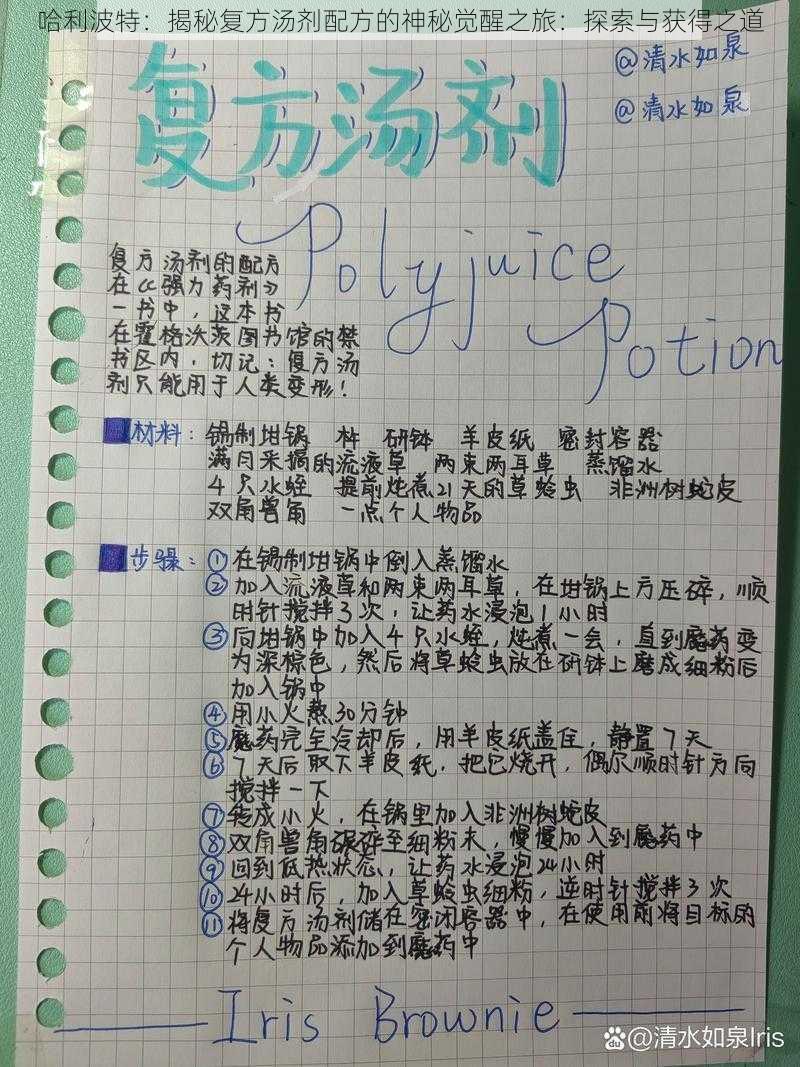 哈利波特：揭秘复方汤剂配方的神秘觉醒之旅：探索与获得之道
@清水如泉
@清水如泉
复方汤剂
Polyjuice
Potion
复方汤剂的配方
在《强力药剂》
一书中，这本书
在霍格沃茨图书馆的禁
书区内，切记：复方汤
剂只能用于人类变形！
材料：锡制坩锅 杵 研钵 羊皮纸 密封容器
满月采摘的流液草 两束两耳草 蒸馏水
4只水蛭 提前炖煮21天的草蛉虫 非洲树蛇皮
双角兽角 一点个人物品
步骤：①在锡制坩锅中倒入蒸馏水
②加入流液草和两束两耳草，在坩锅上方压碎，顺
时针搅拌3次，让药水浸泡1小时
③向坩锅中加入4只水蛭，炖煮一会，直到魔药变
为深棕色，然后将草蛉虫放在研钵上磨成细粉后
加入锅中
④用小火熬30分钟
⑤魔药完全冷却后，用羊皮纸盖住，静置7天
⑥7天后取下羊皮纸，把它烧开，偶尔顺时针方向
搅拌一下
⑦转成小火，在锅里加入非洲树蛇皮
⑧双角兽角碾碎至细粉末，慢慢加入到魔药中
⑨回到低热状态，让药水浸泡24小时
⑩24小时后，加入草蛉虫细粉，逆时针搅拌3次
⑪将复方汤剂储在密闭容器中，在使用前将目标的
个人物品添加到魔药中
Iris Brownie
@清水如泉Iris